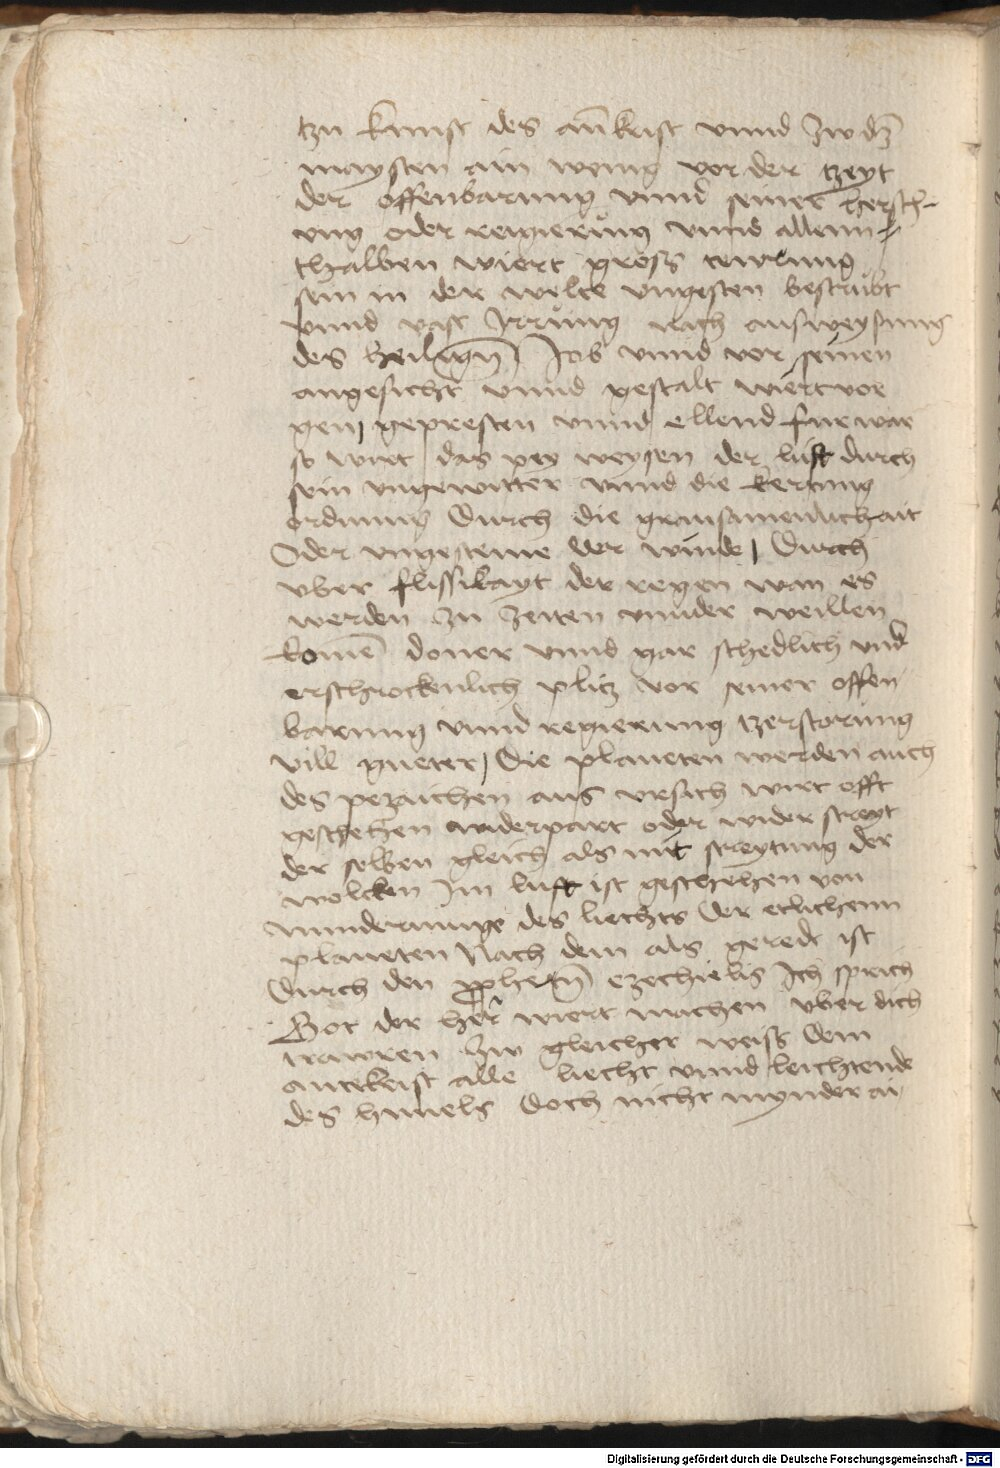 tzu kunft des antkrist vnnd zw dem
maysten ain wenig vor der tzeyt
der offenbarung vnnd seiner hersch-
ung oder reigierung vnnd allenn-
thalben wiert gross tewrung
sein in der welte vngesten bestrubt
vnnd vast Irrung nach ausweysung
des heiligen Job vnnd vor seinen
angesicht vnnd gestalt wiert vor
gen gepresten vnnd ellend fur war
so wirt das pey weysen der luft durch
sein vngewitter vnnd die kerung
ordnung Durch die grausamenlichait
Oder vngesteme der winde / Durch
vber flissikayt der regen wan es
werden zu zeiten vnnder weillen
komen doner vnnd gar schedlich vnd
erschrockenlich plitz vor seiner offen
barung vnnd regierung tzerstorung
vill gueter / Die planeten werden auch
des pezaichen aus vrsich wirt offt
geschehen widerpart oder wider streyt
der selben gleich als mit streytung der
wolcken Im luft ist geschehen von
minderunge des liechts der etlichenn
planeten Nach dem als geredt ist
Durch den propheten ezechielis Ich sprich
Got der her wiert machen vber dich
trawren zw gleicher weiss dem
antekrist alle liecht vnnd leichtende
des himels Doch nicht mynder ai
Digitalisierung gefördert durch die Deutsche Forschungsgemeinschaft - DFG